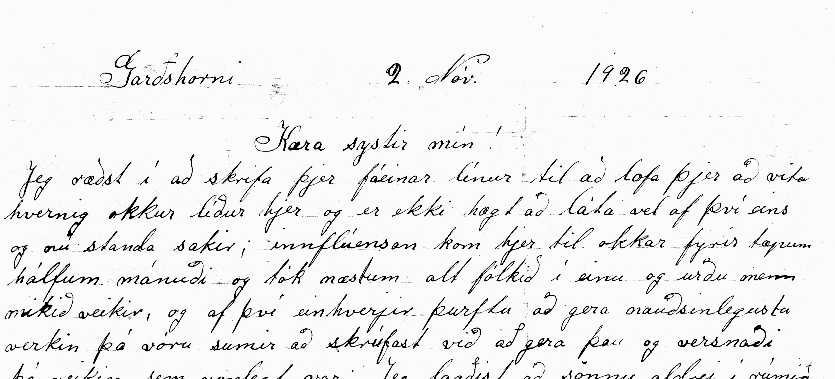 Garðshorni 2. Nóv. 1926
Kæra systir mín!
Jeg ræðst í að skrifa þjer fáeinar línur til að lofa þjer að vita
hvernig okkur líður hjer og er ekki hægt að láta vel af því eins
og nú standa sakir; innflúensan kom hjer til okkar fyrir tæpum
hálfum mánuði og tók næstum alt fólkið í einu og urðu menn
mikið veikir, og af því einhverjir þurftu að gera nauðsinlegustu
verkin þá vóru sumir að skrúfast við að gera þau og versnaði